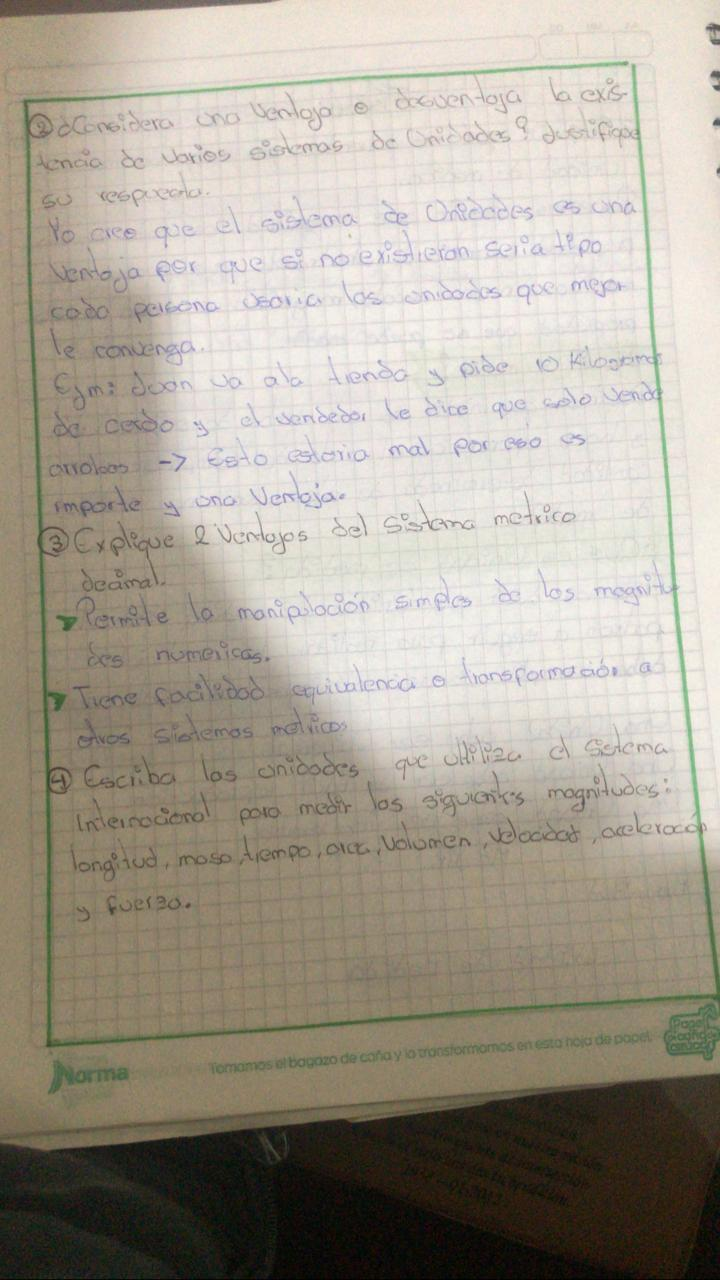 ② ¿Considera una ventaja o desventaja la exis-
tencia de varios sistemas de Unidades? Justifique
su respuesta.
Yo creo que el sistema de Unidades es una
Ventaja por que si no existieron seria tipo
cada persona usaria las unidades que mejor
le convenga.
Ejm: Juan va ala tienda y pide 10 Kilogramos
de cerdo y el vendedor le dice que solo vende
arrobas -> Esto estaria mal por eso es
importe y una Ventaja.
③ Explique 2 Ventajas del Sistema metrico
decimal.
Permite la manipulación simples de las magnitu
des numericas.
Tiene facilidad equivalencia o transformación a
otros sistemas metricos
④ Escriba las unidades que utiliza el Sistema
Internacional para medir las siguientes magnitudes:
longitud, masa, tiempo, area, Volumen, Velocidad, aceleración
y fuerza.
Norma Tomamos el bagazo de caña y lo transformamos en esta hoja de papel.